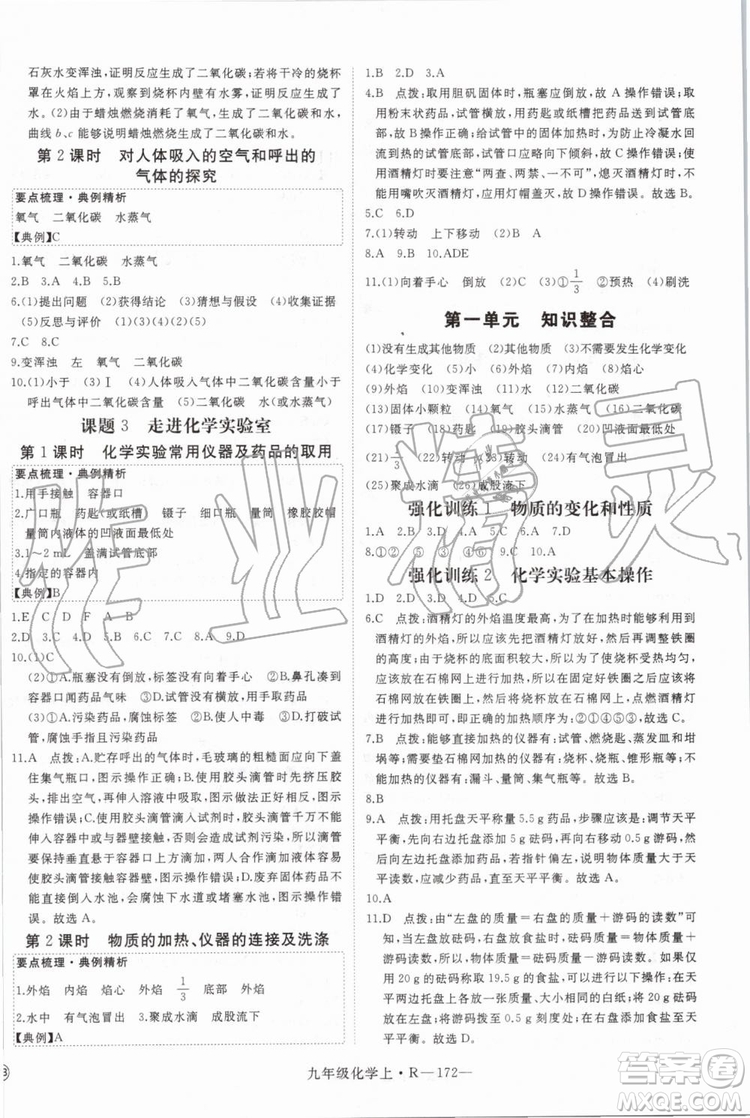 石灰水变浑浊，证明反应生成了二氧化碳；若将干冷的烧杯
罩在火焰上方，会观察到烧杯内壁有水雾，证明反应生成了
水。(2)由于蜡烛燃烧消耗了氧气，生成了二氧化碳和水，故
曲线b、c能够说明蜡烛燃烧生成了二氧化碳和水。
第2课时　对人体吸入的空气和呼出的
气体的探究
要点梳理·典例精析
氧气　二氧化碳　水蒸气
【典例】C
1.氧气　二氧化碳　水蒸气
2.B　3.A　4.A　5.B
6.(1)提出问题　(2)获得结论　(3)猜想与假设　(4)收集证据
(5)反思与评价　(1)(3)(4)(2)(5)
7.C　8.C
9.变浑浊　左　氧气　二氧化碳
10.(1)小于　(2)Ⅰ　(4)人体吸入气体中二氧化碳含量小于
呼出气体中二氧化碳含量　二氧化碳　水(或水蒸气)
课题3　走进化学实验室
第1课时　化学实验常用仪器及药品的取用
要点梳理·典例精析
1.用手接触　容器口
2.广口瓶　药匙(或纸槽)　镊子　细口瓶　量筒　橡胶胶帽
量筒内液体的凹液面最低处
3.1～2 mL　盖满试管底部
4.指定的容器内
【典例】B
1.E　D　C　A　B
2.D　3.C　4.D　5.C　6.B　7.C　8.A　9.D
10.(1)C
(2)①A.瓶塞没有倒放，标签没有向着手心　②B.鼻孔凑到
容器口闻药品气味　③D.试管没有横放，药匙没有伸入试管
(3)①A.污染药品，腐蚀标签　②B.使人中毒　③D.打破试
管底
11.A　点拨：A.贮存呼出的气体时，毛玻璃的粗糙面应向下盖
住集气瓶瓶口，图示操作正确。B.使用胶头滴管时先挤压胶
头，再伸入溶液中吸取溶液，不能伸入溶液后再挤压胶头，图
示操作错误。C.使用胶头滴管滴加少量液体时，胶头滴管
不能触碰试管内壁，否则会造成试剂污染，所以应使滴管
垂直悬空于容器口上方滴加，两人合作滴加液体容易出现
失误，图示操作错误。D.废弃固体药品不可直接倒入水池，
直接倒入水池，会腐蚀下水道或者堵塞水池，图示操作错
误。故选A。
第2课时　物质的加热、仪器的连接及洗涤
要点梳理·典例精析
1.外焰　内焰　焰心　外焰　1/3　底部　外焰
2.水中　有气泡冒出　3.聚成水滴　成股流下
【典例】A
1.B　2.D　3.A
4.B　点拨：取用胆矾固体时，瓶塞应倒放，故A操作错误；取
用粉末状药品，试管横放，用药匙或纸槽把药品送到试管底
部，故B操作正确；给试管中的固体加热时，为防止冷凝水回
流到热的试管底部，试管口应略向下倾斜，故C操作错误；使
用酒精灯时要注意“两查、两禁、一不可”，熄灭酒精灯时，不
能用嘴吹灭酒精灯，应用灯帽盖灭，故D操作错误。故选B。
5.C　6.D
7.(1)转动　上下移动
8.A　9.B　10.ADE
11.(1)向着手心　倒放　(2)C　(3)①1/3　②预热　(4)刷洗
第一单元　知识整合
(1)没有生成其他物质　(2)其他物质　(3)不需要发生化学变化
(4)化学变化　(5)小　(6)大　(7)三　(8)外焰
(9)外焰　(10)变浑浊　(11)水　(12)氧气　(13)小
(14)白　(15)固体小颗粒　(16)二氧化碳　(17)外焰
(17)镊子　(18)药匙　(19)胶头滴管　(20)凹液面最低处
(21)1/3　(22)药品　(23)水　(24)有气泡冒出
(25)聚成水滴　(26)成股流下
强化训练1　物质的变化和性质
1.A　2.B　3.D　4.C　5.A　6.A　7.D
8.①②⑤　③④⑥　9.D　10.A
强化训练2　化学实验基本操作
1.C　2.A　3.B　4.B　5.D
6.C　点拨：因为酒精灯的外焰温度最高，为了在加热时使用
酒精灯的外焰加热，所以应该先放酒精灯，然后再调整铁圈
的高度；由于烧杯的底面积较大，所以为了使其受热均匀，
应该放在石棉网上加热，不能直接加热，所以固定好后应将
石棉网放在铁圈上，然后把烧杯放在石棉网上，点燃酒精灯
进行加热，所以正确的加热顺序为：②①④⑤③。故选C。
7.A　点拨：能够直接加热的仪器有：试管、燃烧匙、蒸发皿和坩
埚等；需要垫石棉网加热的仪器有：烧杯、烧瓶、锥形瓶等；不
能加热的仪器有：漏斗、量筒、集气瓶等。故选A。
8.B
9.A　点拨：用托盘天平称量5.5 g药品，步骤应该是：调节天平
平衡，先向右边托盘中添加5 g砝码，再移动0.5 g游码，然
后向左边托盘添加药品，若指针偏左，说明药品质量大于天
平读数，应减少药品，直至天平平衡。故选A。
10.A
11.D　点拨：由“左盘的质量＝右盘的质量＋游码的读数”可知，
由于左盘放砝码、右盘放食盐时，所以就相当于“砝码的质
量＝食盐的质量＋游码的读数”；要称量19.5 g食盐，所以可
以使用20 g的砝码称取19.5 g的食盐；为了防止腐蚀天平，在天
平两盘内各放一张等大的白纸，然后将游码移到0.5 g处，
再把20 g砝码放在左盘，往右盘加食盐至天平平衡。故
选D。
九年级化学上·R—172—
作业精灵
答案圈
MXQE.COM